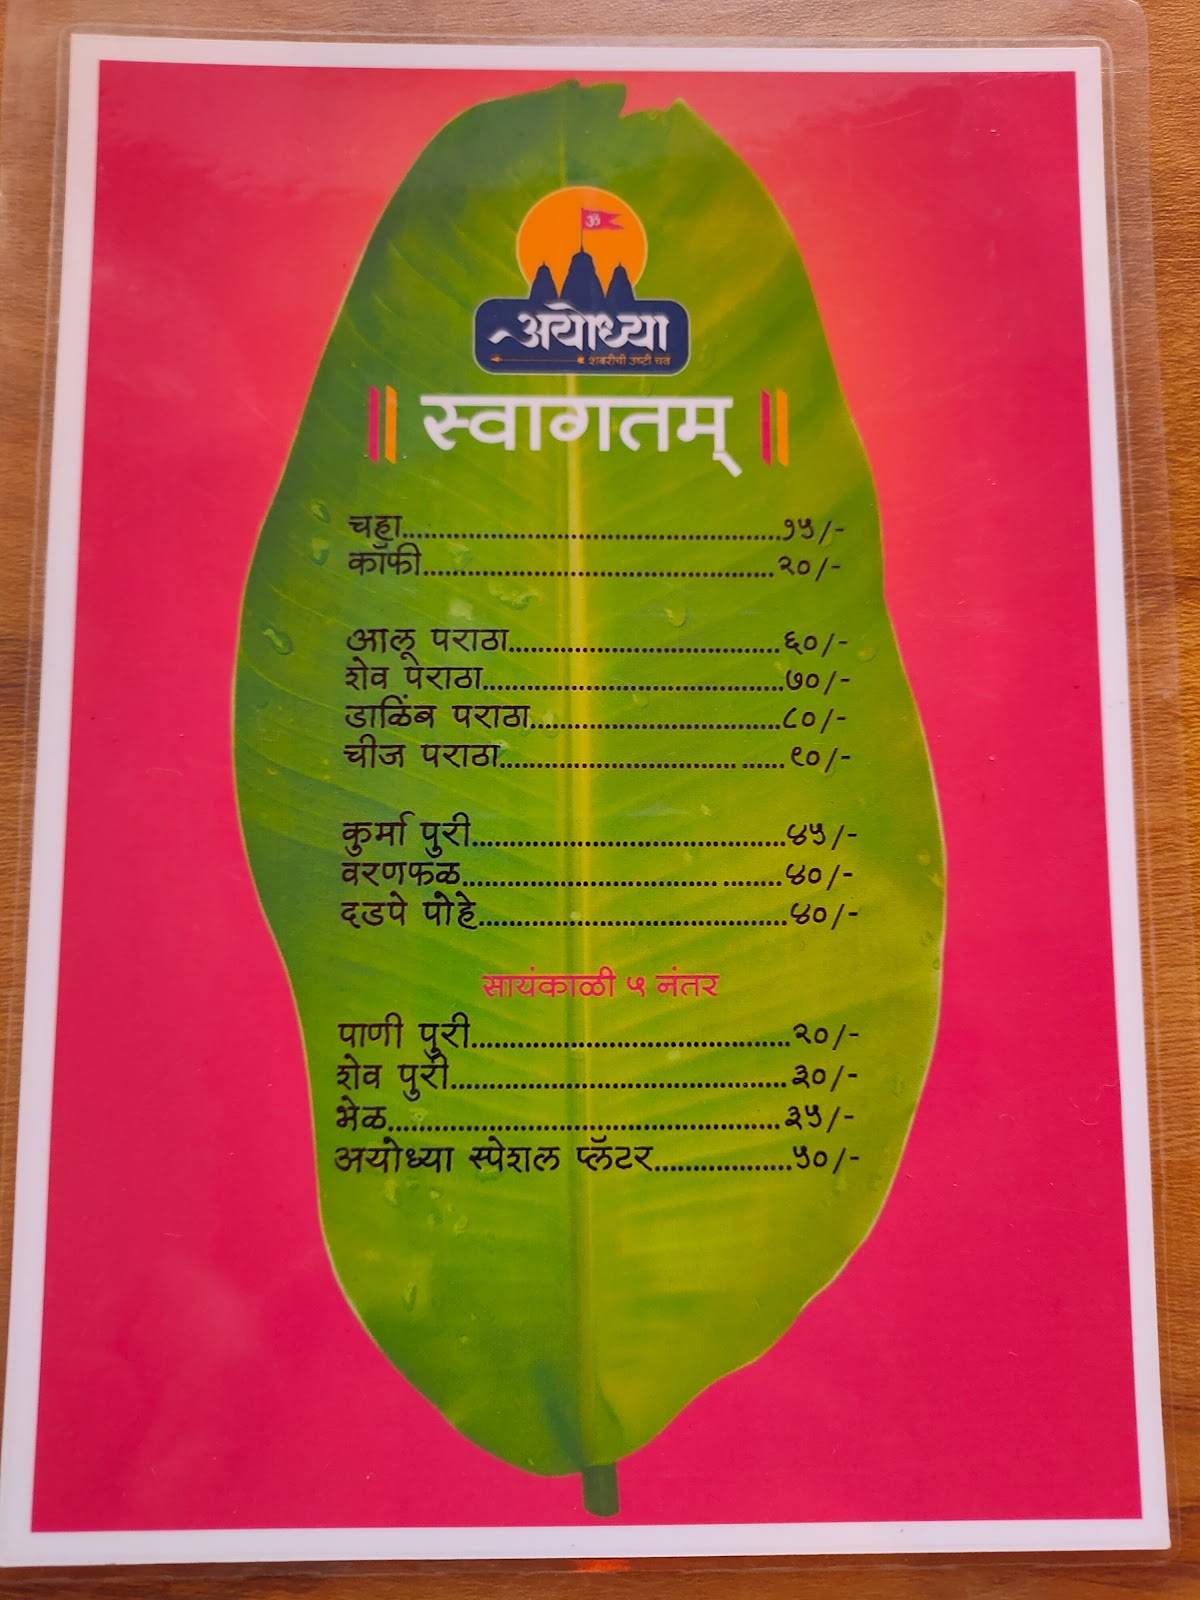 ॐ
अयोध्या
शबरीची उष्टी चव
|| स्वागतम् ||
चहा.......................................................१५/-
कॉफी...................................................२०/-
आलू पराठा.......................................६०/-
शेव पराठा...........................................७०/-
डाळिंब पराठा....................................८०/-
चीज पराठा.................................. ......९०/-
कुर्मा पुरी.............................................४५/-
वरणफळ..................................... ........४०/-
दडपे पोहे............................................४०/-
सायंकाळी ५ नंतर
पाणी पुरी..............................................२०/-
शेव पुरी................................................३०/-
भेळ.........................................................३५/-
अयोध्या स्पेशल प्लॅटर....................५०/-